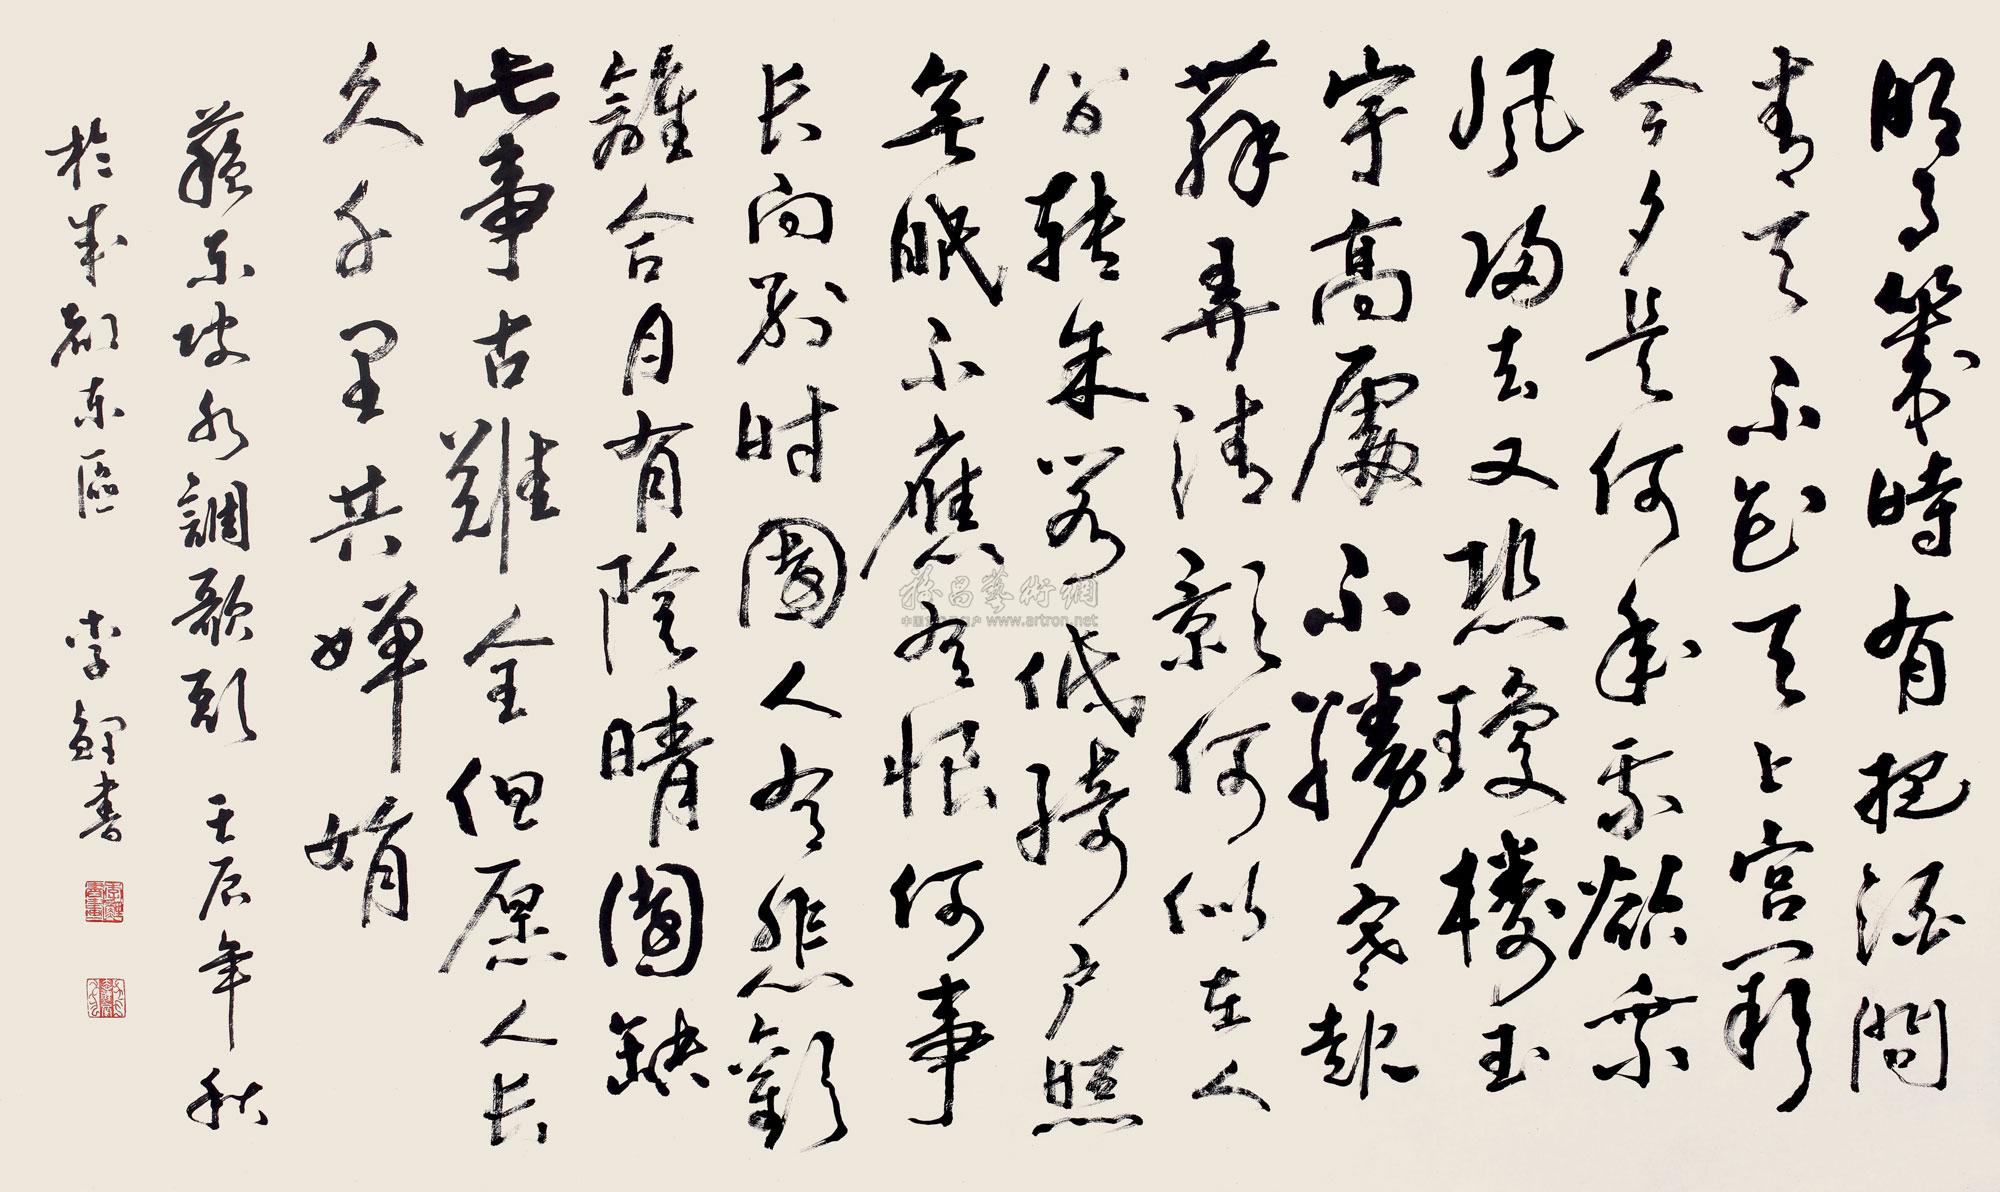 明月幾時有把酒問
青天不知天上宮闕
今夕是何年我欲乘
風歸去又恐瓊樓玉
宇高處不勝寒起
舞弄清影何似在人
間轉朱閣低綺户照
無眠不應有恨何事
长向別时圓人有悲歡
離合月有陰晴圓缺
此事古難全但愿人长
久千里共嬋娟
蘇东坡水調歌頭 壬辰年秋
於成都东區 李鯉書
雅昌藝術網
www.artron.net